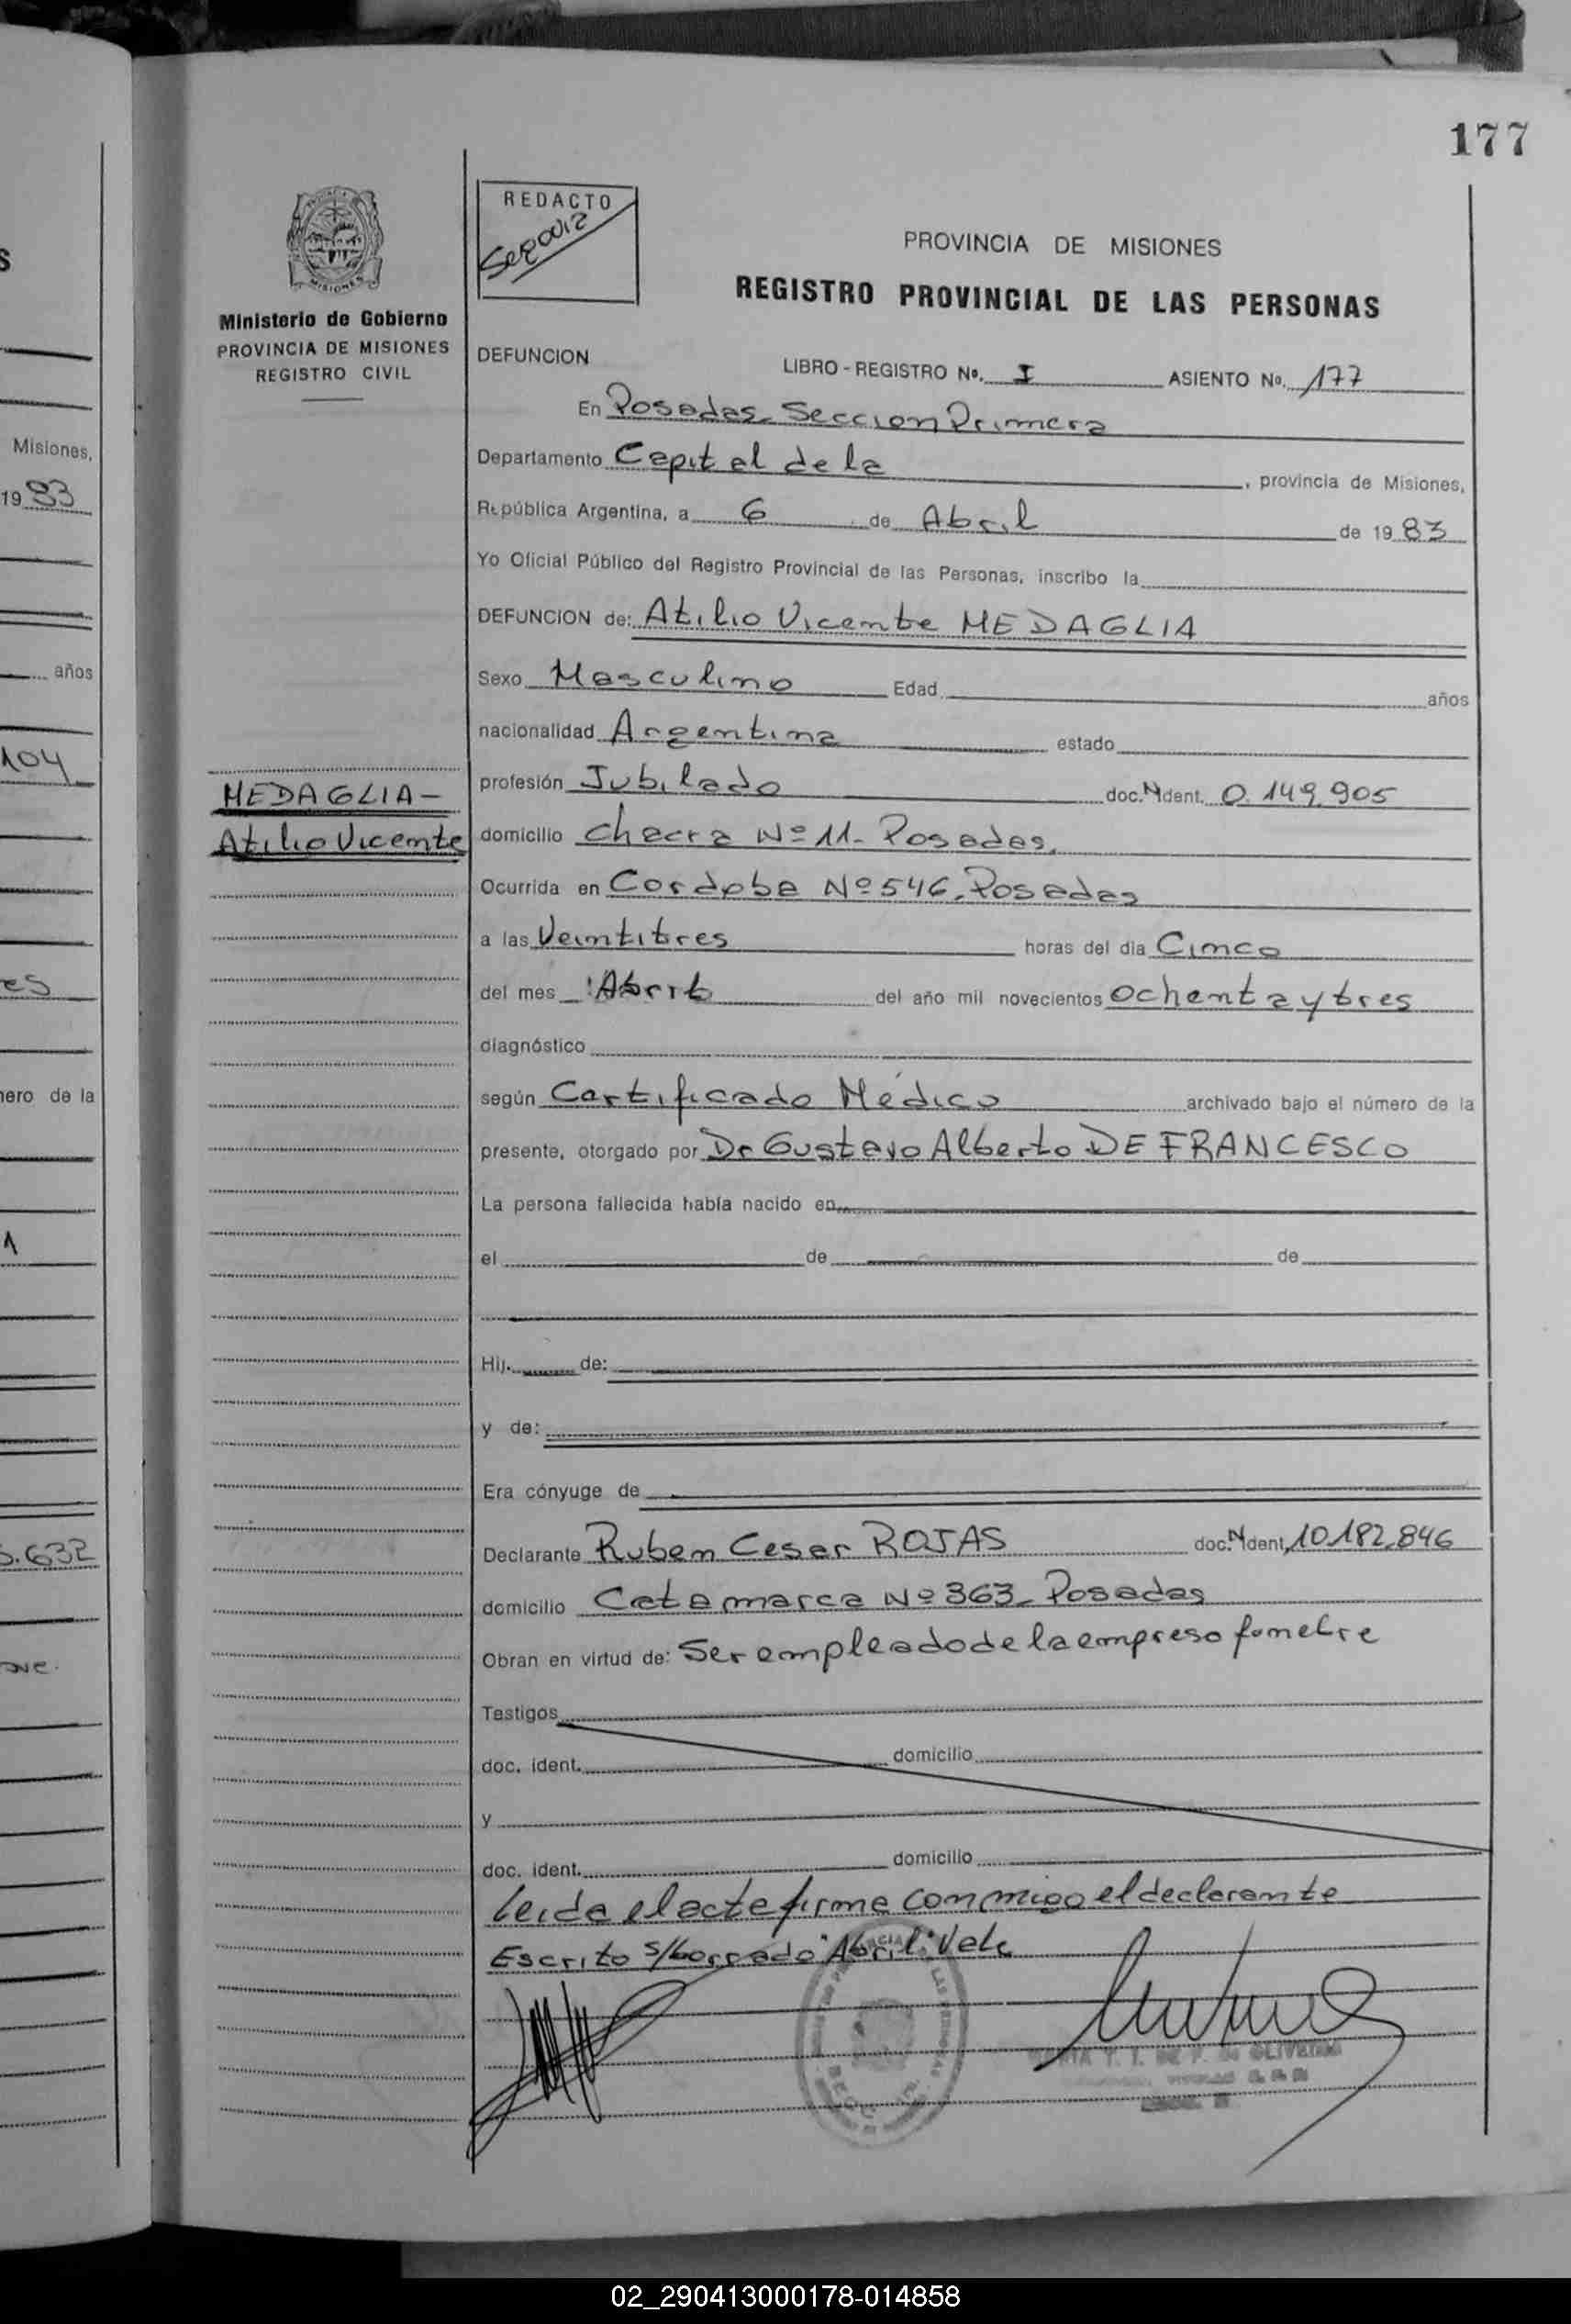 177
REDACTO
PROVINCIA DE MISIONES
REGISTRO PROVINCIAL DE LAS PERSONAS
MISIONES
Ministerio de Gobierno
PROVINCIA DE MISIONES
REGISTRO CIVIL
DEFUNCION LIBRO - REGISTRO Nº. I ASIENTO Nº. 177
En Posadas Seccion Primera
Departamento Capital de la , provincia de Misiones,
República Argentina, a 6 de Abril de 1983
Yo Oficial Público del Registro Provincial de las Personas, inscribo la
DEFUNCION de: Atilio Vicente MEDAGLIA
Sexo Masculino Edad años
nacionalidad Argentina estado
profesión Jubilado doc. N ident. 0.149.905
MEDAGLIA-
Atilio Vicente
domicilio Chacra Nº 11- Posadas.
Ocurrida en Cordoba Nº 546, Posadas
a las Veintitres horas del día Cinco
del mes Abril del año mil novecientos ochenta y tres
diagnóstico
según Certificado Médico archivado bajo el número de la
presente, otorgado por Dr Gustavo Alberto DE FRANCESCO
La persona fallecida había nacido en
el de de
Hij. de:
y de:
Era cónyuge de
Declarante Ruben Cesar ROJAS doc. N ident. 10.182.846
domicilio Catamarca Nº 363- Posadas
Obran en virtud de: Ser empleado de la empresa funebre
Testigos
doc. ident. domicilio
y
doc. ident. domicilio
Leida el acta firma conmigo el declarante
Escrito s/borrado "Abril" Vale
Misiones,
1983
años
104
es
ero de la
1
.632
02_290413000178-014858